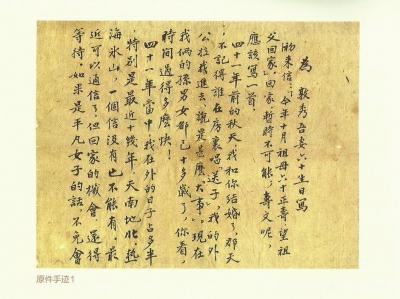 為
敦秀吾妻六十生日寫
来信:“今年十月祖母六十正壽望祖
父回家”回家暫時不可能,壽文呢,
應該寫一首。
四十一年前的秋天,我和你結婚了,那天
不記得誰在房裏唱“送子”,我的外
公拉我進去,說是甚麽大事。現在
我倆的孫男女都已十多歲了,你看,
時間過得多麽快!
四十一年當中,我在外的日子占多半
特别是最近十幾年,天南地北,熱
海氷山,一個信没有也不能有,最
近可以通信了,但回家的機會,還得
等待,如果是平凡女子的話,不免會
原件手迹1